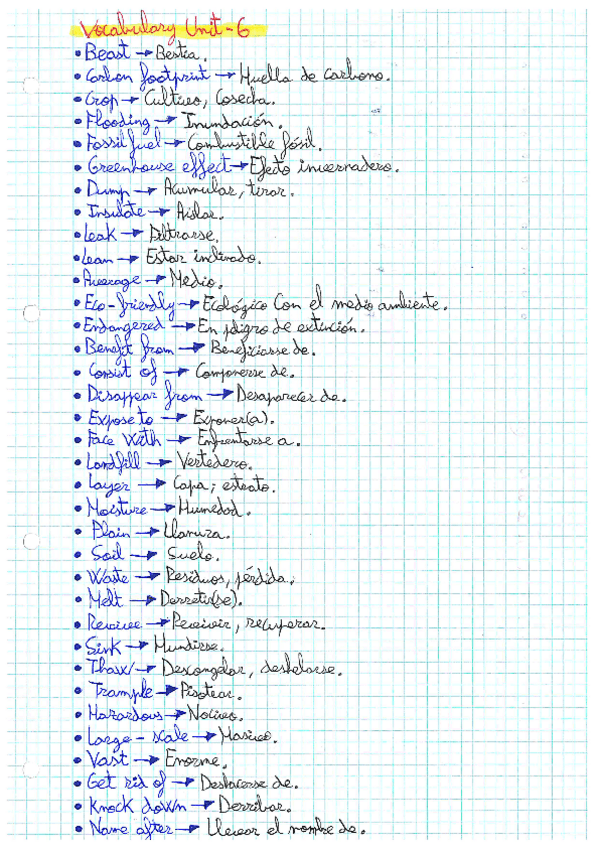 Vocabulary Unit-6
• Beast → Bestia.
• Carbon footprint → Huella de carbono.
• Crop → Cultivo, Cosecha.
• Flooding → Inundación.
• Fossil fuel → Combustible fósil.
• Greenhouse effect → Efecto invernadero.
• Dump → Acumular, tirar.
• Insulate → Aislar.
• Leak → Filtrarse.
• Lean → Estar inclinado.
• Average → Medio.
• Eco-friendly → Ecológico Con el medio ambiente.
• Endangered → En peligro de extinción.
• Benefit from → Beneficiarse de.
• Consist of → Componerse de.
• Disappear from → Desaparecer de.
• Expose to → Exponer(a).
• Face With → Enfrentarse a.
• Landfill → Vertedero.
• Layer → Capa; estrato.
• Moisture → Humedad.
• Plain → Llanura.
• Soil → Suelo.
• Waste → Residuos, pérdida.
• Melt → Derretir(se).
• Revive → Revivir, recuperar.
• Sink → Hundirse.
• Thaw → Descongelar, deshelarse.
• Trample → Pisotear.
• Hazardous → Nocivo.
• Large-scale → Masivo.
• Vast → Enorme.
• Get rid of → Deshacerse de.
• Knock down → Derribar.
• Name after → Llevar el nombre de.